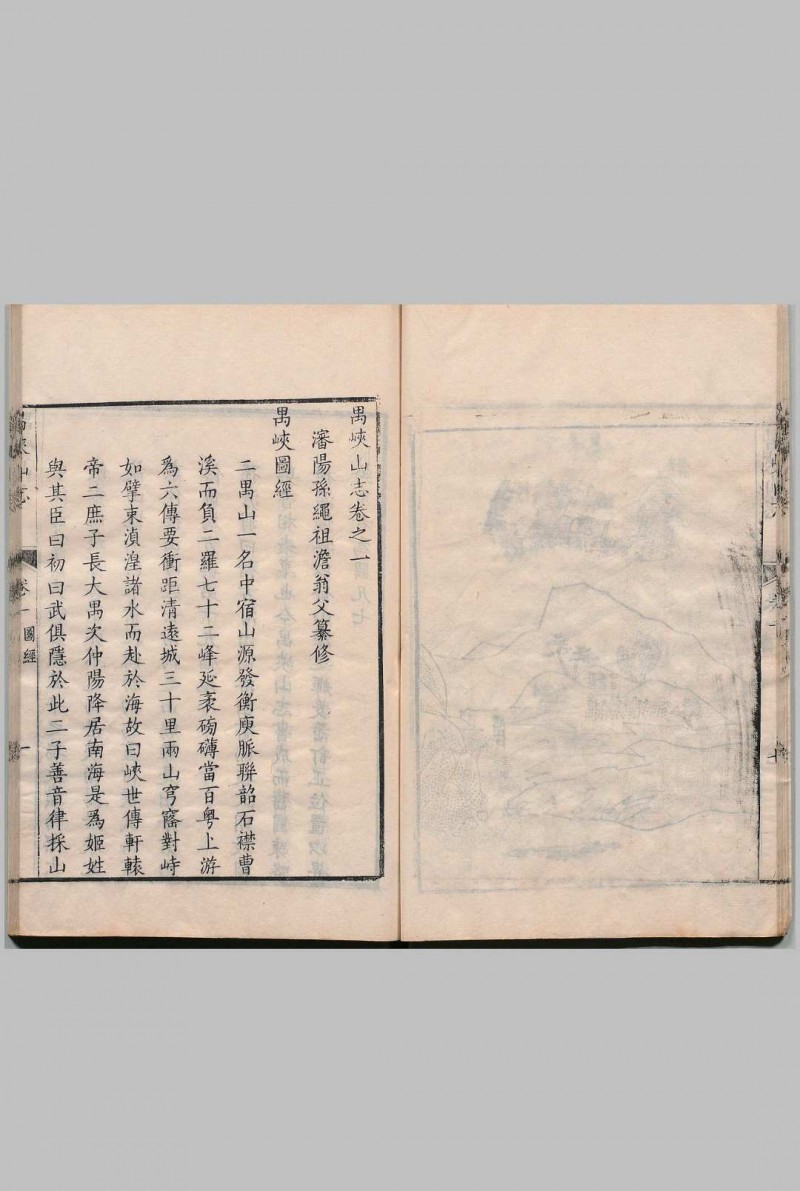 禺峽山志卷之一
瀋陽孫繩祖澹翁父纂修
禺峽圖經
二禺山一名中宿山源發衡庾脈聯韶石襟曹
溪而負二羅七十二峰延袤磅礴當百粤上游
為六傳要衝距清遠城三十里兩山穹窿對峙
如擘束湞湟諸水而赴於海故曰峽世傳軒轅
帝二庶子長大禺次仲陽降居南海是為姬姓
與其臣曰初曰武俱隱於此二子善音律採山
禺峽山志
卷一
圖經
一